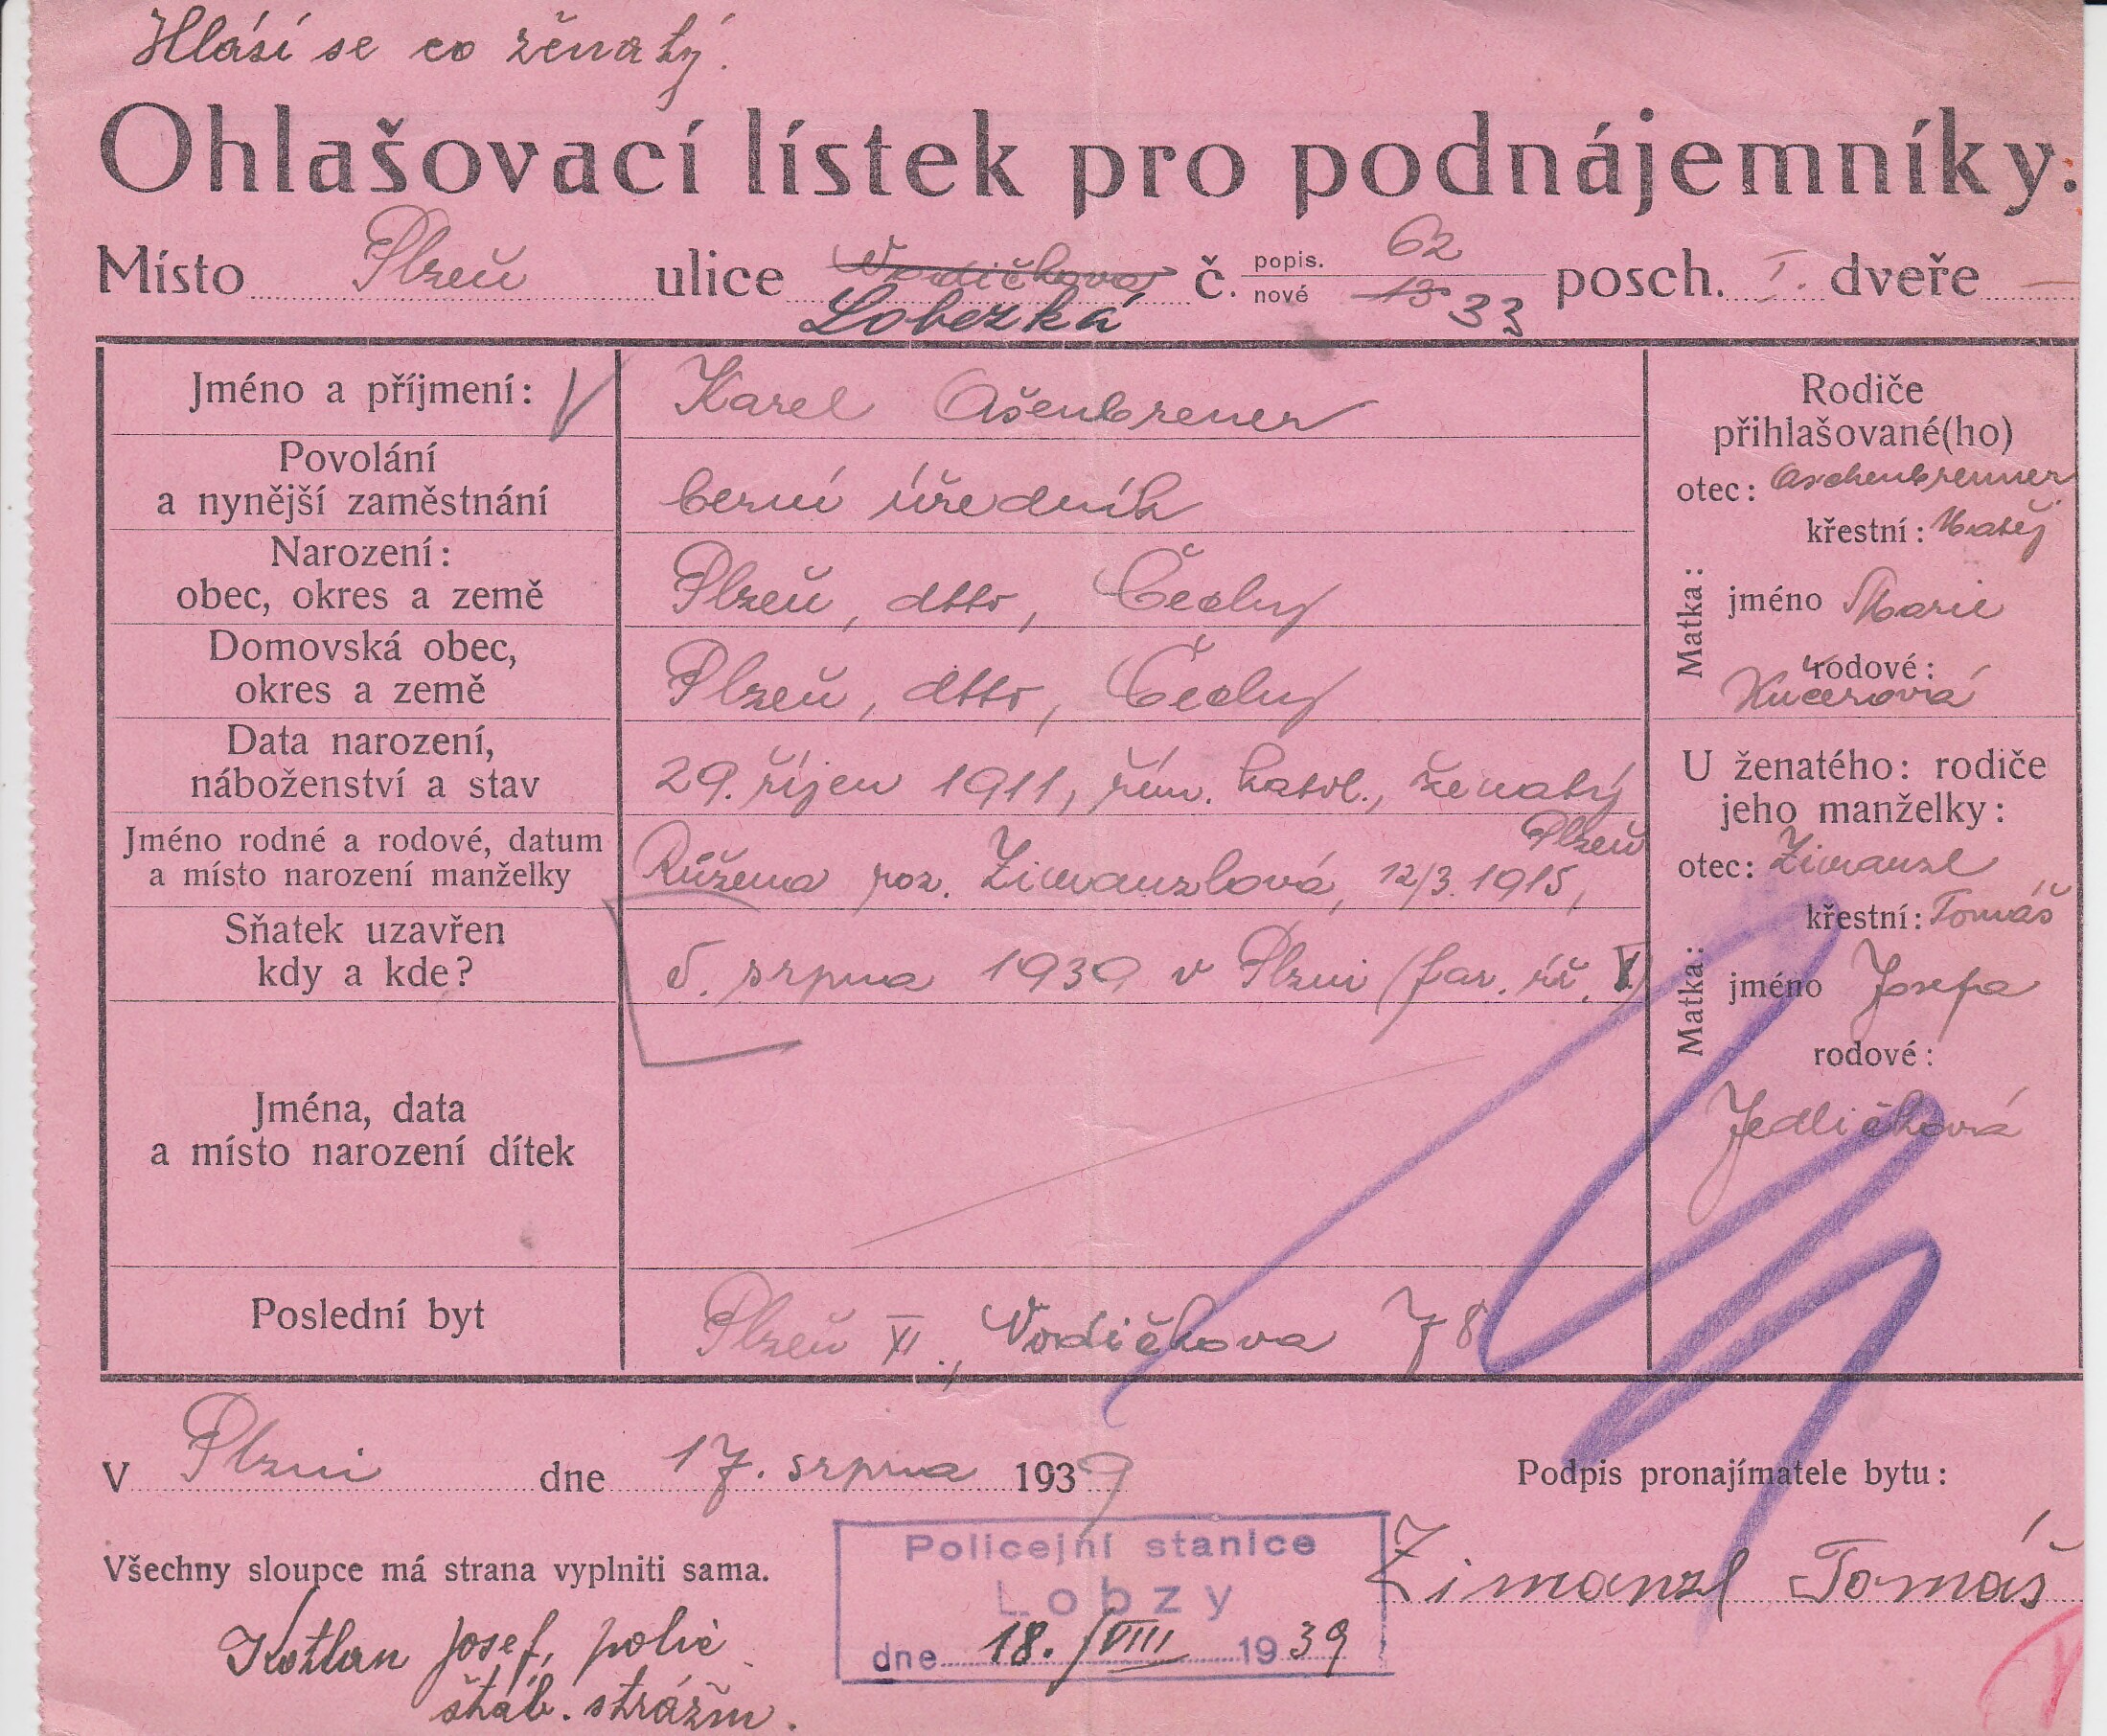 Hlásí se co ženatý.
Ohlašovací lístek pro podnájemníky.
Místo Plzeň ulice Vodičkova č. popis. 62 nové 13 33 posch. I. dveře —
Lobezká
Jméno a příjmení: Karel Ašenbrener
Povolání
a nynější zaměstnání berní úředník
Narození:
obec, okres a země Plzeň, dtto, Čechy
Domovská obec,
okres a země Plzeň, dtto, Čechy
Data narození,
náboženství a stav 29. říjen 1911, řím. katol., ženatý
Jméno rodné a rodové, datum
a místo narození manželky Růžena roz. Zimanzlová, 12/3. 1915, Plzeň
Sňatek uzavřen
kdy a kde? 5. srpna 1939 v Plzni (far. úř. V.)
Jména, data
a místo narození dítek
Poslední byt Plzeň XI., Vodičkova 78
Rodiče
přihlašované(ho)
otec: Aschenbrenner
křestní: Matěj
Matka:
jméno Marie
rodové:
Kučerová
U ženatého: rodiče
jeho manželky:
otec: Zimanzl
křestní: Tomáš
Matka:
jméno Josefa
rodové:
Jedličková
V Plzni dne 17. srpna 1939
Podpis pronajímatele bytu:
Zimanzl Tomáš
Všechny sloupce má strana vyplniti sama.
Policejní stanice
Lobzy
dne 18. /VIII 1939
Kotlan Josef, polic.
štáb. strážm.